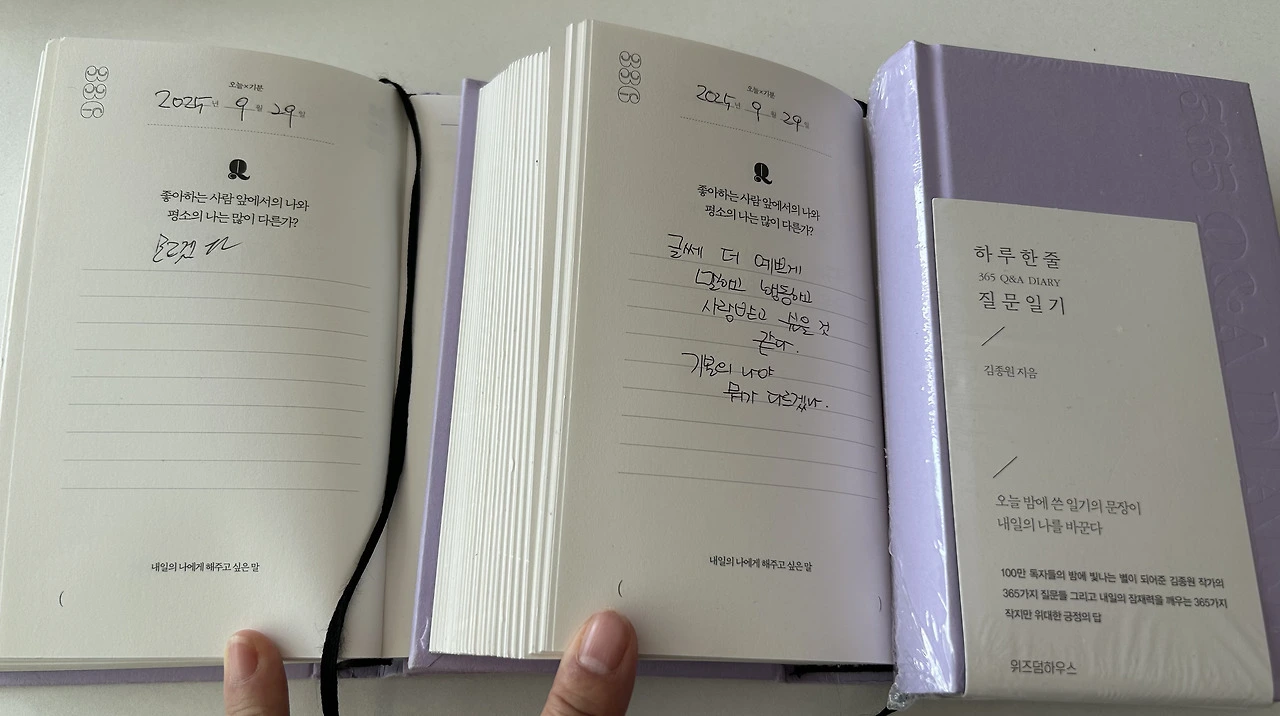 336
오늘×기분
2025년 9월 29일
Q
좋아하는 사람 앞에서의 나와
평소의 나는 많이 다른가?
모르겠다
내일의 나에게 해주고 싶은 말
(
336
오늘×기분
2025년 9월 29일
Q
좋아하는 사람 앞에서의 나와
평소의 나는 많이 다른가?
글쎄 더 예쁘게
말하고 행동하고
사랑받고 싶은 것
같다.
기본의 나야
뭐가 다르겠나.
내일의 나에게 해주고 싶은 말
( )
365 Q&A DIARY
하루한줄
365 Q&A DIARY
질문일기
김종원 지음
오늘 밤에 쓴 일기의 문장이
내일의 나를 바꾼다
100만 독자들의 밤에 빛나는 별이 되어준 김종원 작가의
365가지 질문들 그리고 내일의 잠재력을 깨우는 365가지
작지만 위대한 긍정의 답
위즈덤하우스